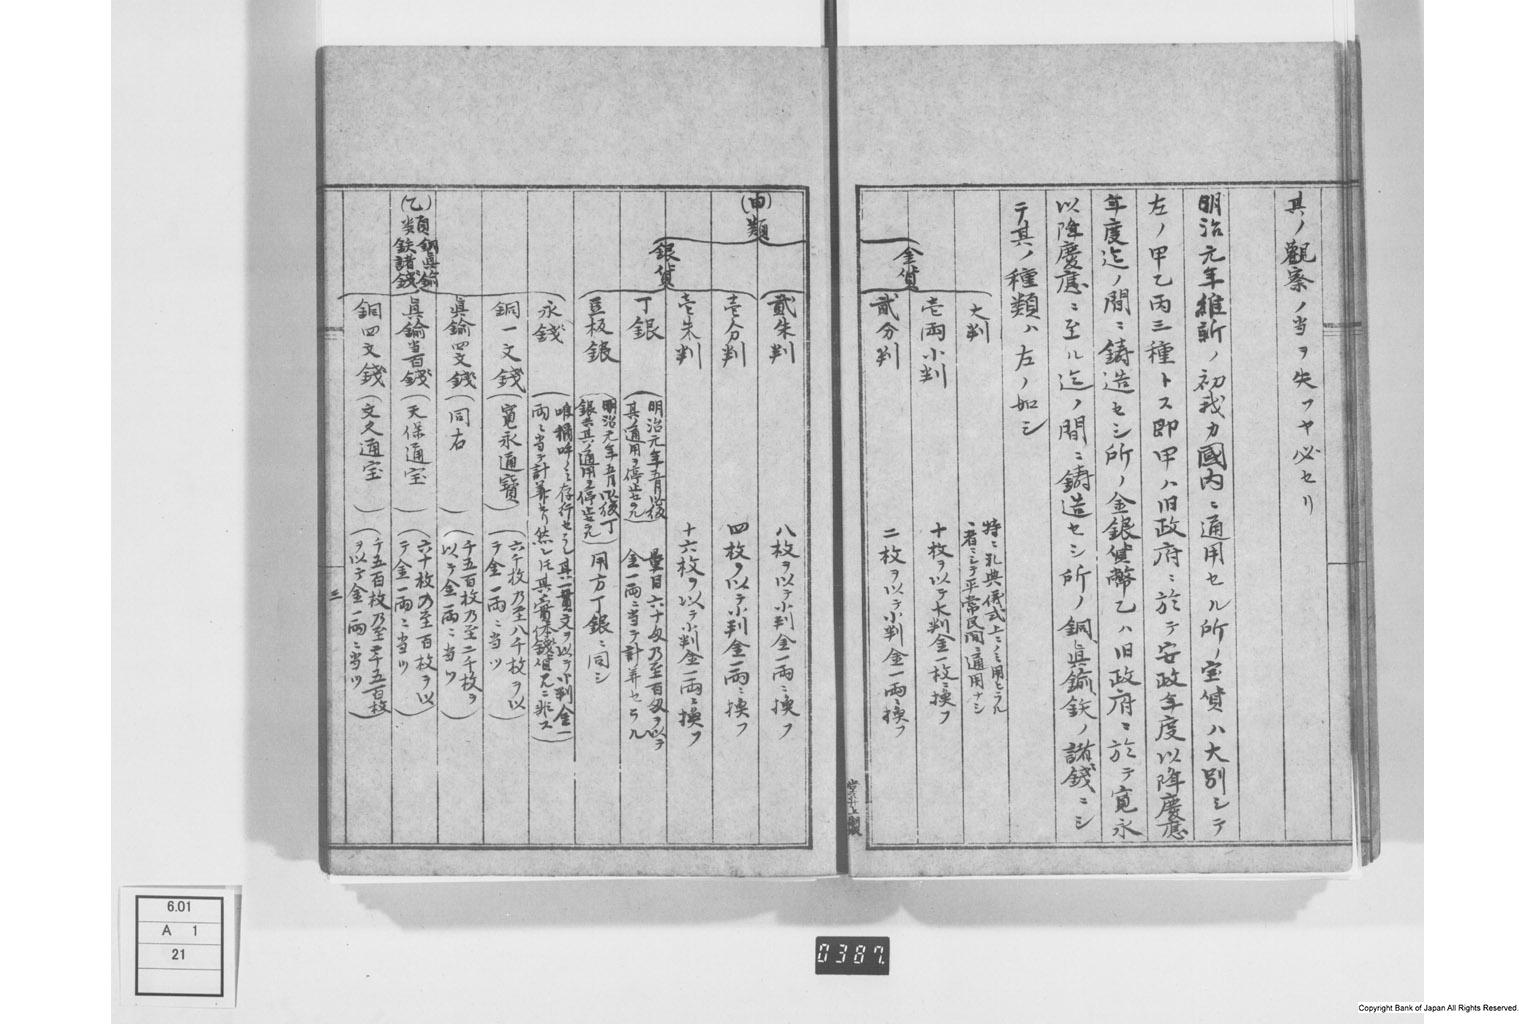 其ノ觀察ノ当ヲ失フヤ必セリ
明治元年維新ノ初我カ國内ニ通用セル所ノ宝貨ハ大別シテ
左ノ甲乙丙三種トス即甲ハ旧政府ニ於テ安政年度以降慶應
年度迄ノ間ニ鋳造セシ所ノ金銀貨幣乙ハ旧政府ニ於テ寛永
以降慶應ニ至ル迄ノ間ニ鋳造セシ所ノ銅眞鍮鉄ノ諸錢ニシ
テ其ノ種類ハ左ノ如シ
金貨
大判 特ニ礼典儀式上ニノミ用ヒラル
ヽ者ニシテ平常民間ニ通用ナシ
壱両小判 十枚ヲ以テ大判金一枚ニ換フ
貳分判 二枚ヲ以テ小判金一両ニ換フ
(甲)類
貳朱判 八枚ヲ以テ小判金一両ニ換フ
壱分判 四枚ヲ以テ小判金一両ニ換フ
銀貨
壱朱判 十六枚ヲ以テ小判金一両ニ換フ
丁銀 (明治元年五月以後
其ノ通用ヲ停止セラル) 量目六十匁乃至百匁ヲ以テ
金一両ニ当テ計算セラル
豆板銀 (明治元年五月以後丁
銀共其ノ通用ヲ停止セラル) 用方丁銀ニ同シ
永錢 (唯稱呼ノミ存行セラレ其一貫文ヲ以テ小判金一
両ニ当テ計算セリ然レ𪜈其實体錢貨ニ非ス)
銅一文錢 (寛永通寶) (六千枚乃至八千枚ヲ以
テ金一両ニ当ツ)
(乙)類 銅眞鍮
鉄諸錢
眞鍮四文錢 (同右) (千五百枚乃至二千枚ヲ
以テ金一両ニ当ツ)
眞鍮当百錢 (天保通宝) (六十枚乃至百枚ヲ以
テ金一両ニ当ツ)
銅四文錢 (文久通宝) (千五百枚乃至二千五百枚
ヲ以テ金一両ニ当ツ)
三
6.01
A 1
21
0387
Copyright Bank of Japan All Rights Reserved.